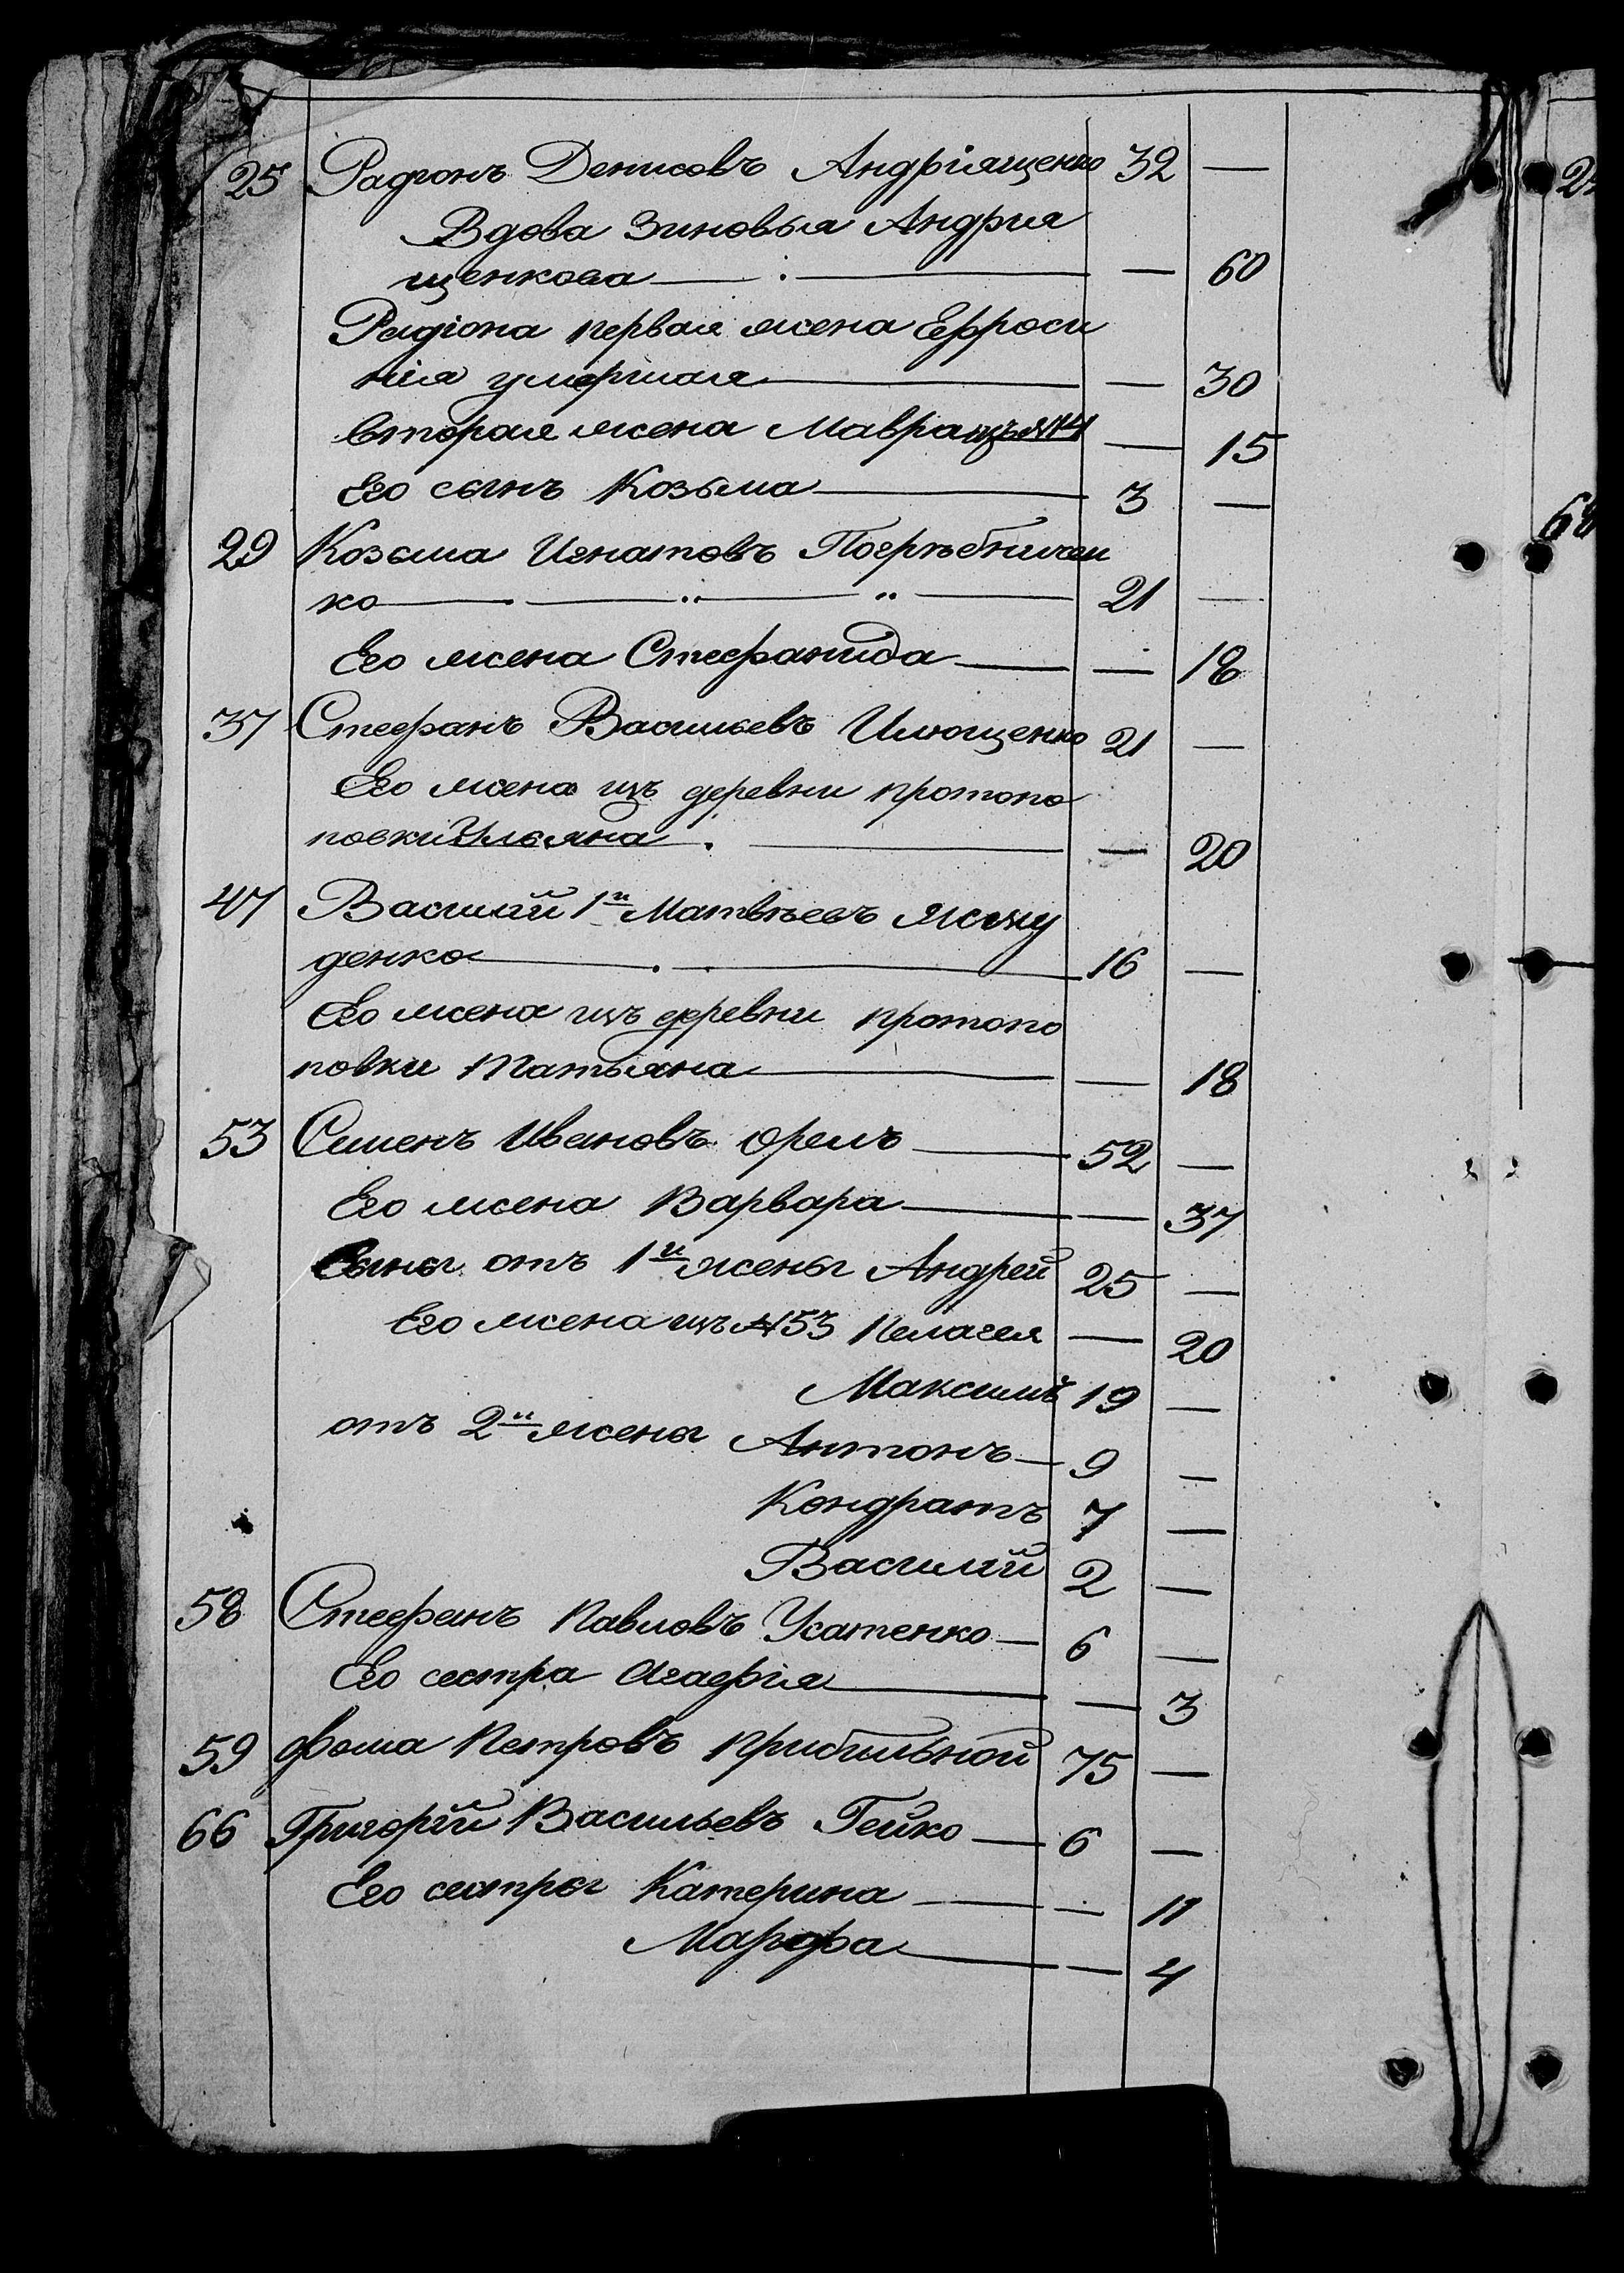 25 Радионъ Денисовъ Андріященко 32 —
Вдова Зиновья Андрия
щенкова — — 60
Радіона первая жена Ефроси
нія умершая — — 30
вторая жена Мавра изъ №14 — 15
Его сынъ Козьма — 3 —
29 Козьма Игнатовъ Погрѣбничен
ко — „ — „ — 21 —
Его жена Стефанида — — 18
37 Стефанъ Васильевъ Илющенко 21 —
Его жена изъ деревни протопо
повки Ульяна — — 20
47 Василій 1й Матвѣевъ
денко — 16 —
Его жена изъ деревни протопо
повки Татьяна — — 18
53 Семенъ Ивановъ Орелъ — 52 —
Его жена Варвара — — 37
Сыны отъ 1й жены Андрей 25 —
Его жена изъ №53 Пелагея — 20
Максимъ 19 —
отъ 2й жены Антонъ — 9 —
Кондратъ 7 —
Василій 2 —
58 Стефанъ Павловъ Усатенко — 6 —
Его сестра Агафія — — 3
59 Фома Петровъ Прибыльной 75 —
66 Григорій Васильевъ Гейко — 6 —
Его сестры Катерина — — 11
Марфа — — 4